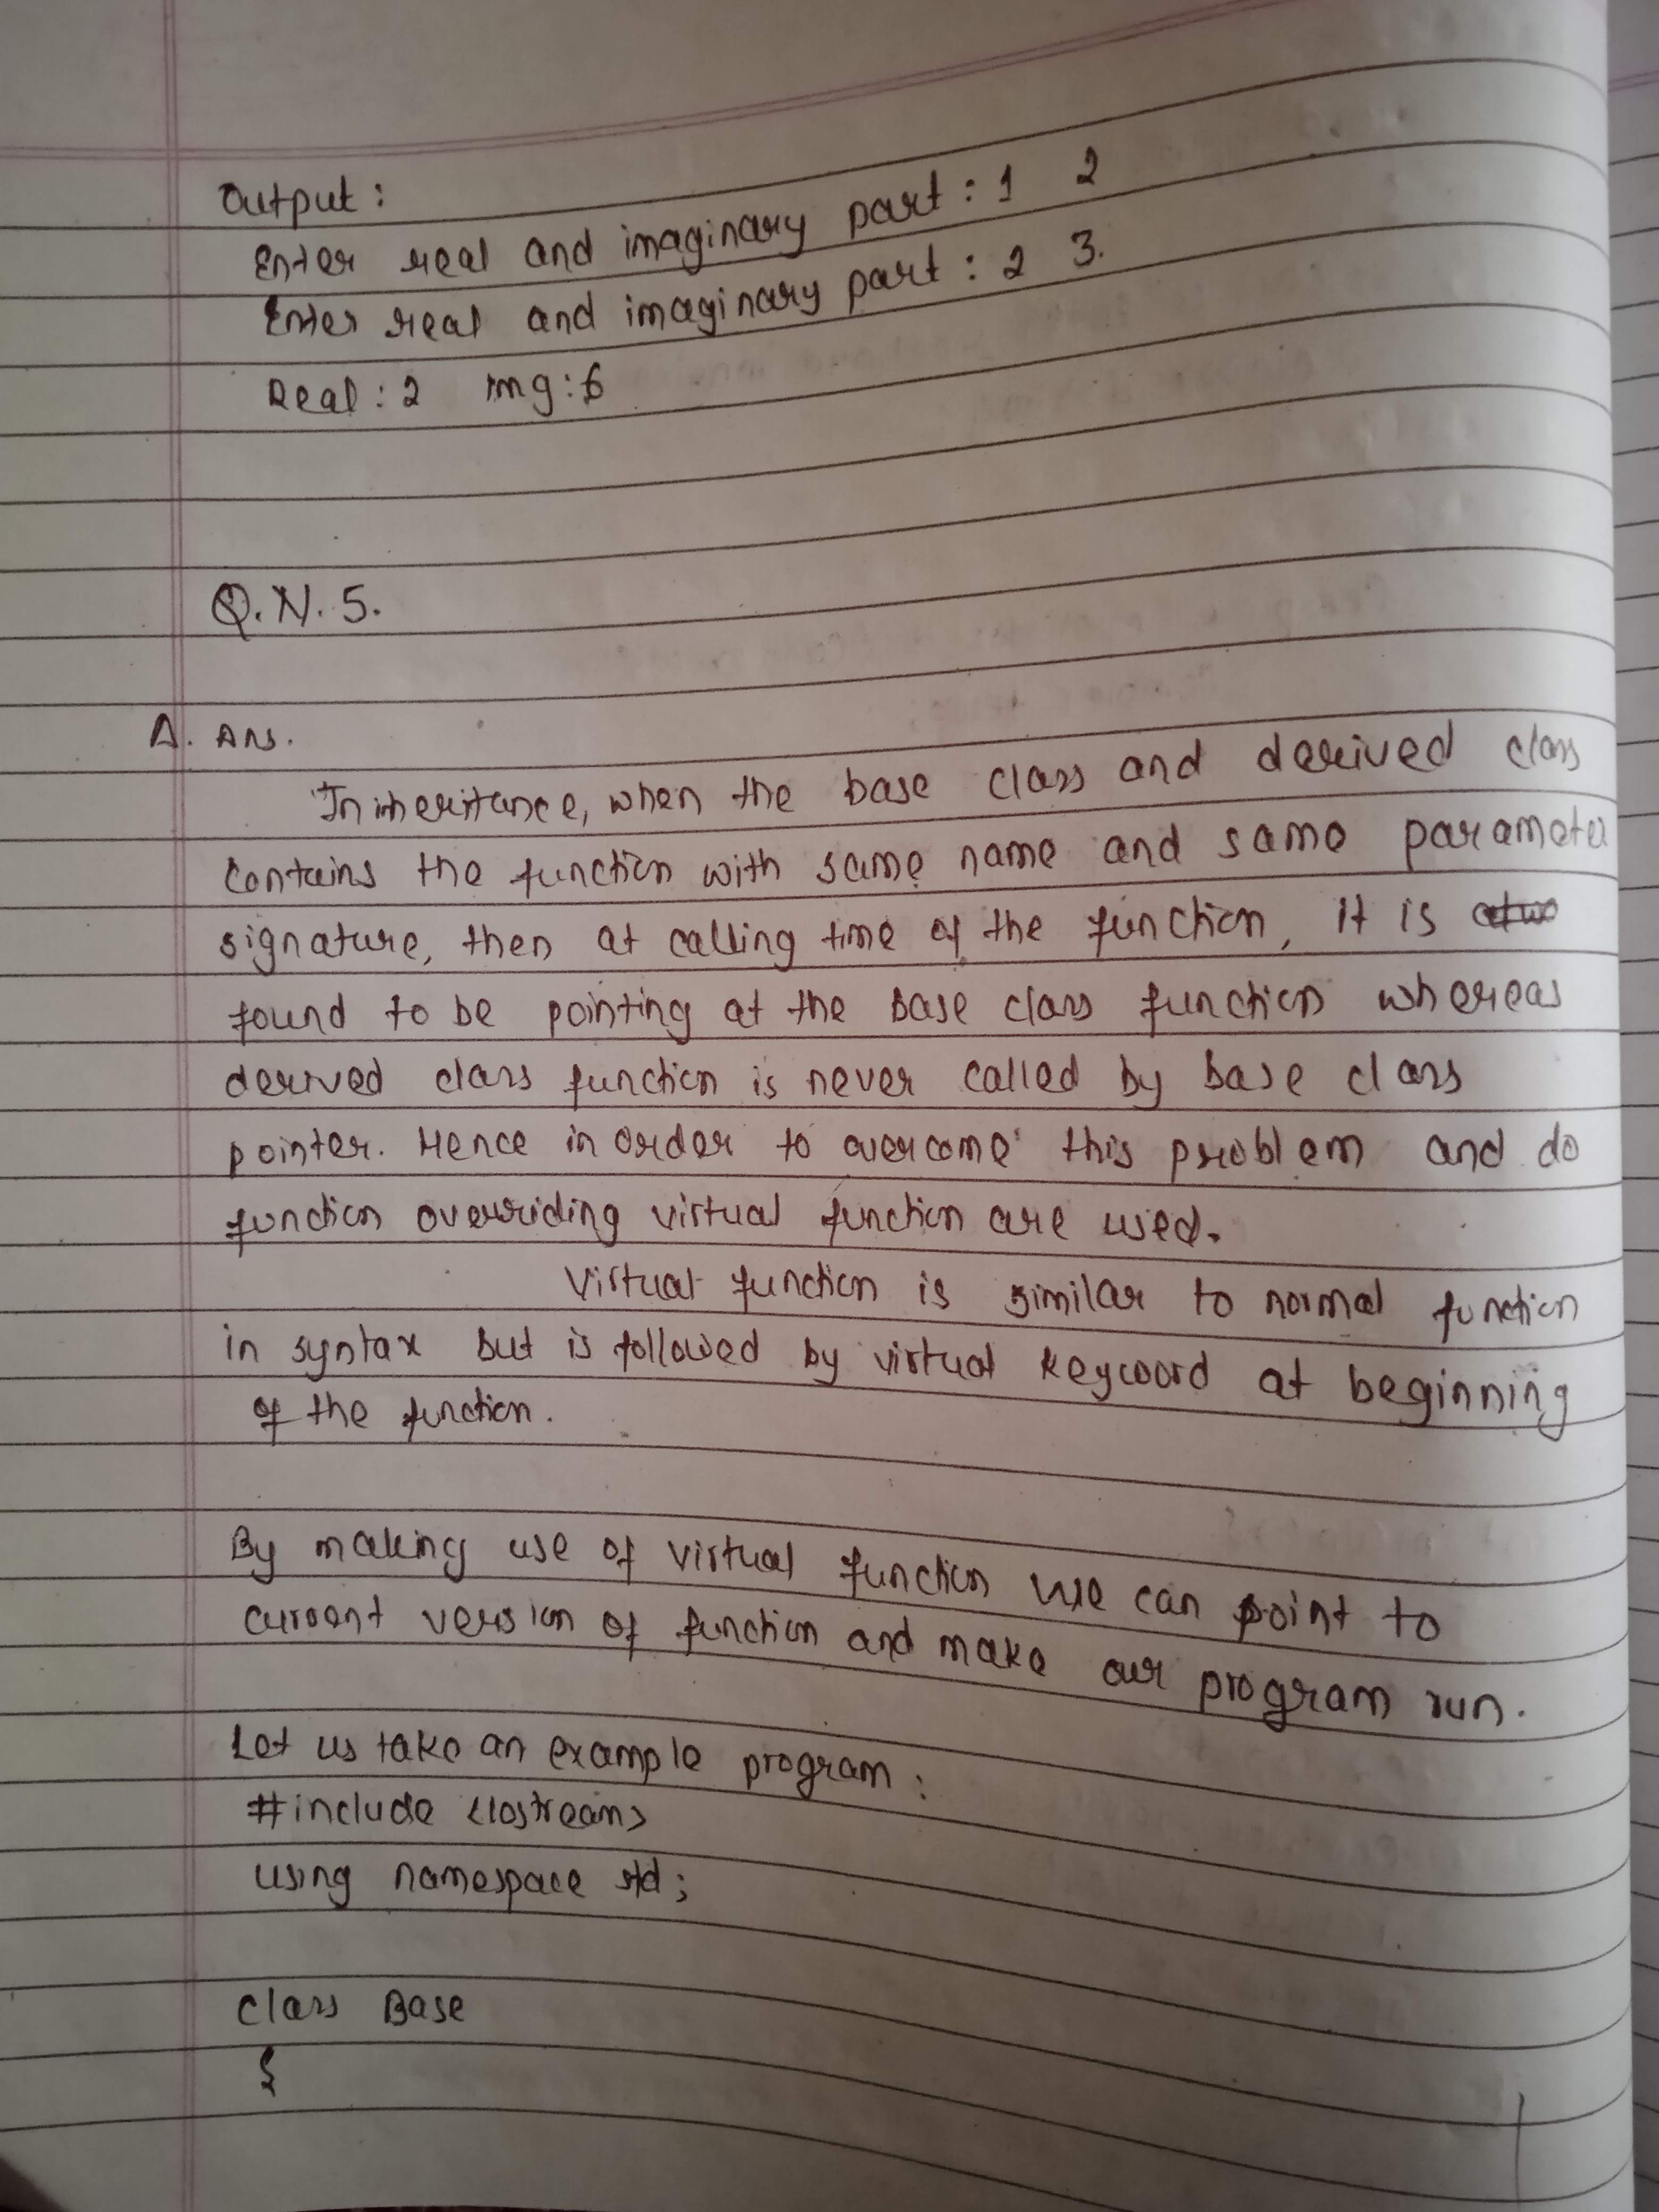 Output :
Enter real and imaginary part : 1 2
Enter real and imaginary part : 2 3.
Real : 2 img : 6
Q.N. 5.
A. Ans.
In inheritance, when the base class and derived class
contains the function with same name and same parameter
signature, then at calling time of the function, it is
found to be pointing at the Base class function whereas
derived class function is never called by base class
pointer. Hence in order to overcome this problem and do
function overriding virtual function are used.
Virtual function is similar to normal function
in syntax but is followed by virtual keyword at beginning
of the function.
By making use of virtual function we can point to
current version of function and make our program run.
Let us take an example program :
#include <iostream>
using namespace std ;
class Base
{